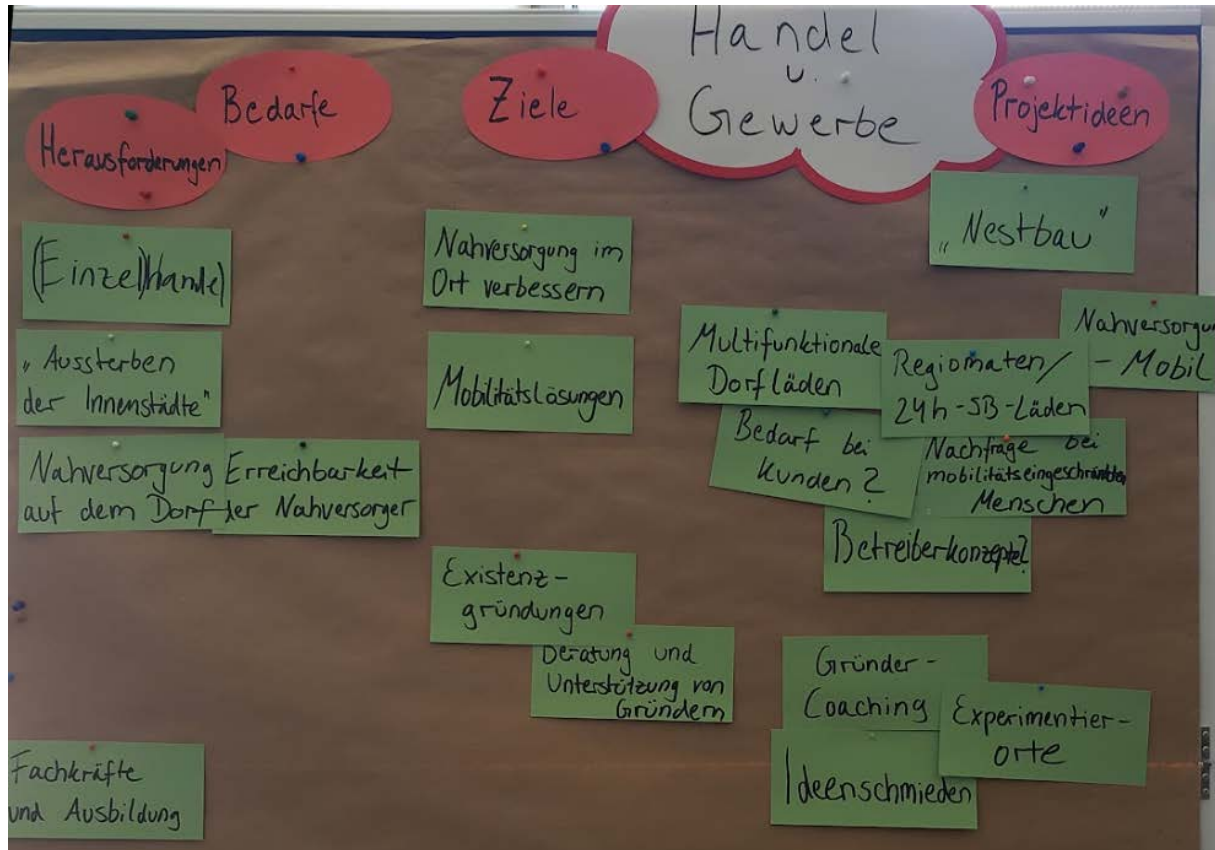 Handel
u.
Gewerbe
Herausforderungen
Bedarfe
Ziele
Projektideen
(Einzel)Handel
„Aussterben
der Innenstädte"
Nahversorgung
auf dem Dorf
Erreichbarkeit
der Nahversorger
Fachkräfte
und Ausbildung
Nahversorgung im
Ort verbessern
Mobilitätslösungen
Existenz-
gründungen
Beratung und
Unterstützung von
Gründern
„Nestbau"
Multifunktionale
Dorfläden
Regiomaten/
24h-SB-Läden
Nahversorgu
- Mobil
Bedarf bei
Kunden?
Nachfrage bei
mobilitätseingeschränkten
Menschen
Betreiberkonzepte?
Gründer-
Coaching
Experimentier-
orte
Ideenschmieden